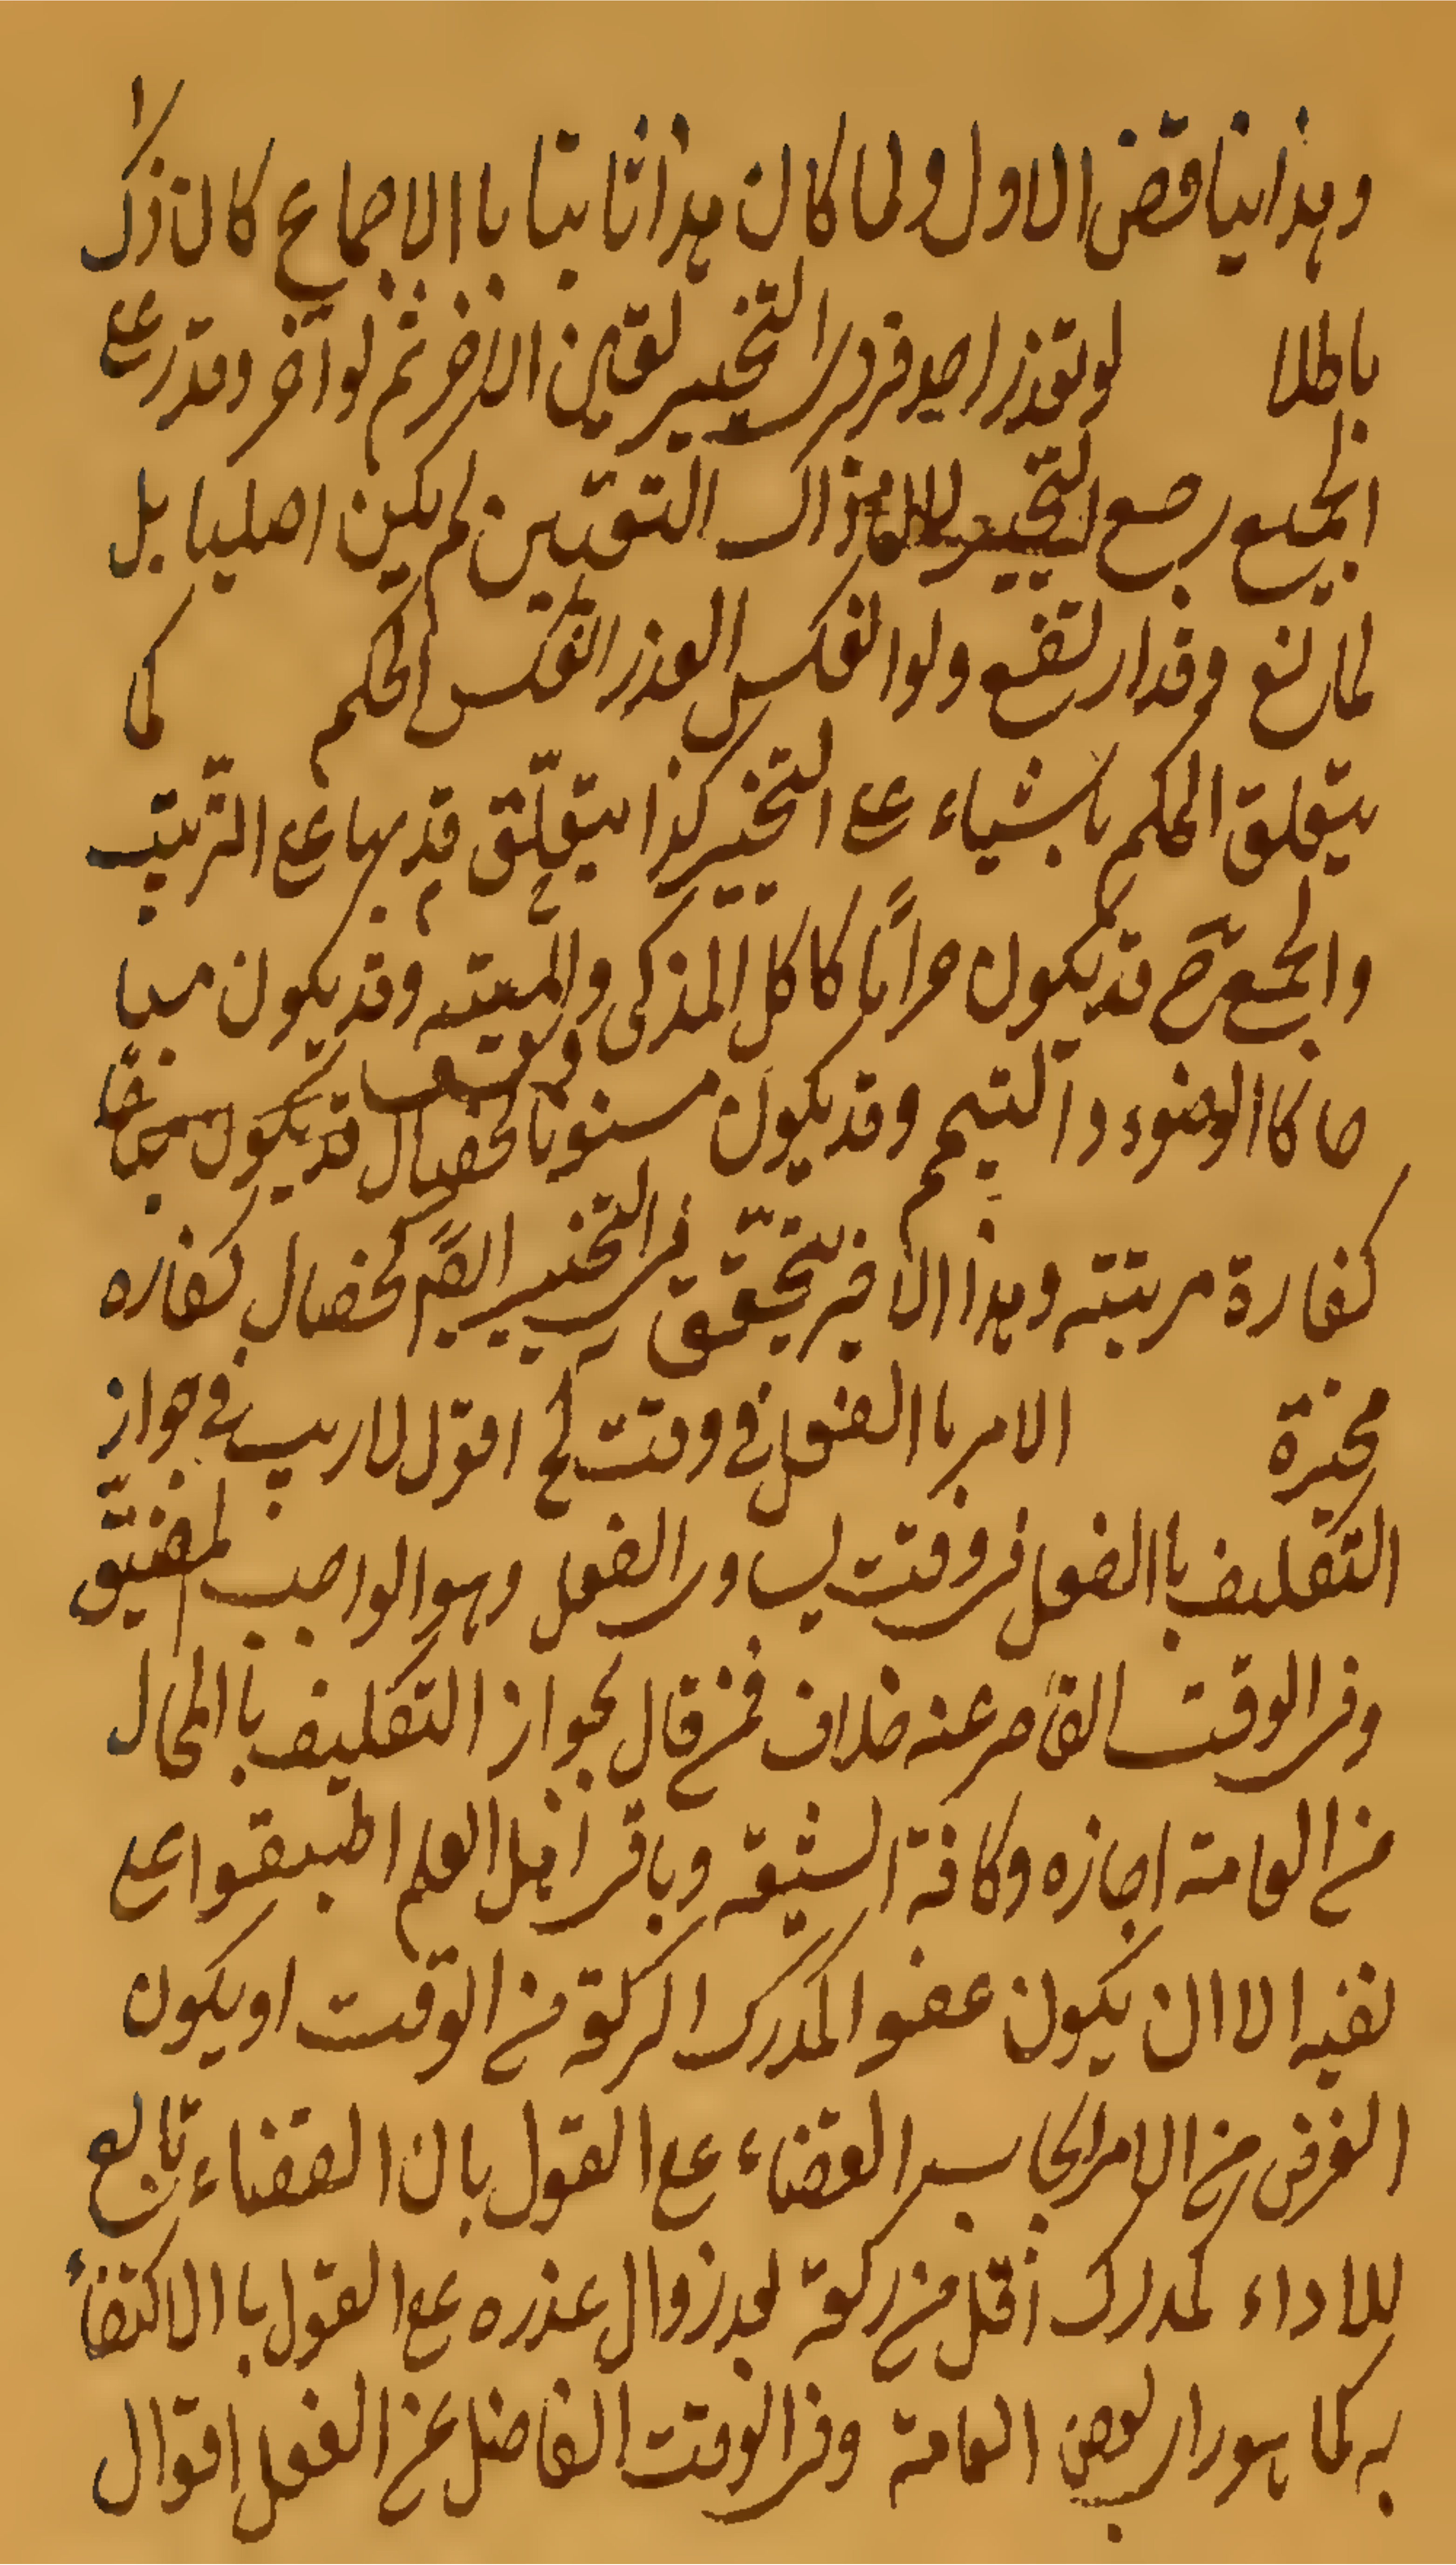 وهذا يناقض الاول ولما كان هذا ثابتا باالاجماع كان ذلك
باطلا لو تعذر احد فردى التخيير تعين الاخر ثم لو اخر وقدر على
الجميع رجع التخيير لان ذاك التعيين لم يكن اصليا بل
لمانع وقد ارتفع ولو انعكس العذر انعكس الحكم كما
يتعلق الحكم باشياء على التخيير كذا يتعلق قد بها على الترتيب
والجمع ح قد يكون حراما كاكل المذكى والميته وقد يكون مبا
حا كاالوضوء و التيمم وقد يكون مسنونا كخصال
كفارة مرتبته وهذا الاخير يتحقق فى التخيير ايضا كخصال كفاره
مخيرة الامر باالفعل فى وقت الخ اقول لا ريب فى جواز
التكليف باالفعل فى وقت يساوى الفعل وهو الواجب المضيق
وفى الوقت القاصر عنه خلاف فمن قال بجواز التكليف باالمحال
من العامة اجازه وكافة الشيعة وباقى اهل العلم اطبقوا على
نفيه الا ان يكون عضو المدرك الركعة من الوقت او يكون
الغرض من الامر ايجاب القضاء على القول بان القضاء تابع
للاداء كمدرك اقل من ركعة بعد زوال عذره على القول باالاكتفاء
به كما هو راى بعض العامة وفى الوقت الفاضل عن الفعل اقوال